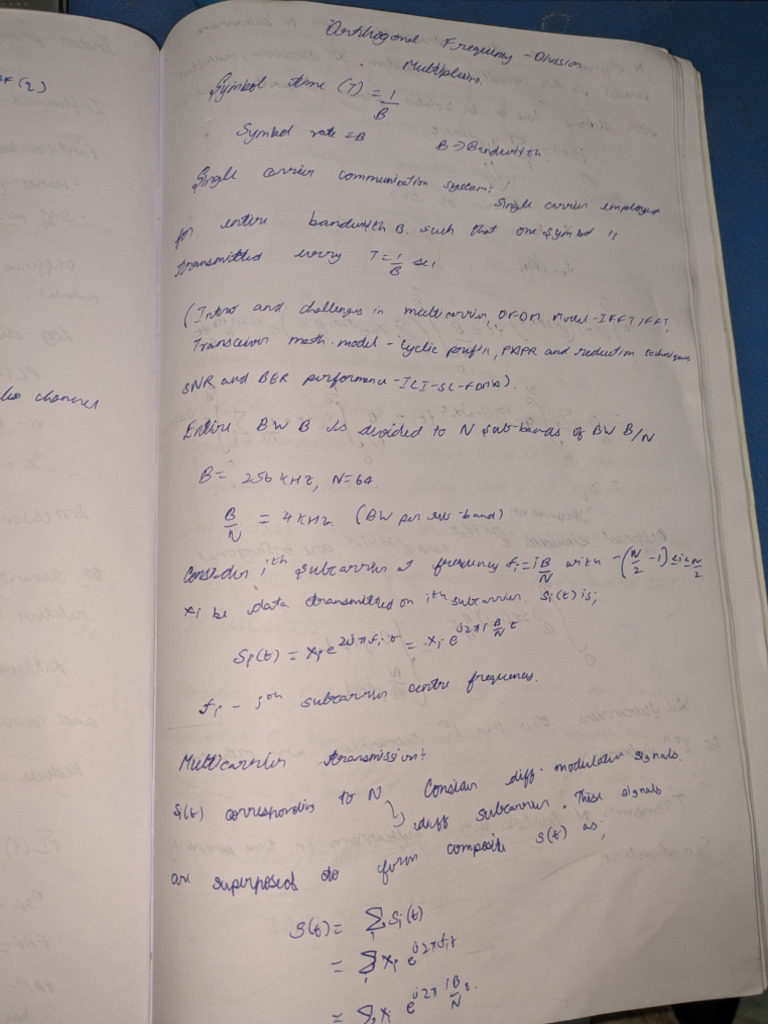 Orthogonal Frequency - Division
Multiplexing.
Symbol time (T) = 1/B
Symbol rate = B B → Bandwidth
Single carrier communication system:
Single carrier employed
for entire bandwith B. such that one symbol is
transmitted every T = 1/B sec.
(Intro and challenges in multicarrier, OFDM model - IFFT, FFT,
Transceiver math model - cyclic prefix, PAPR and reduction techniques
SNR and BER performance - ICI - SC - FDMA).
Entire BW B is divided to N sub-bands of BW B/N
B = 256 kHz, N = 64.
B/N = 4 kHz (BW per sub-band)
Consider ith subcarrier at frequency fi = iB/N with -(N/2 - 1) ≤ i ≤ N/2
xi be data transmitted on ith subcarrier. Si(t) is;
Si(t) = xi e^2jπfit = xi e^j2πi B/N t
fi - ith subcarrier centre frequency.
Multicarrier transmission:
Consider diff. modulated signals
Si(t) corresponding to N diff subcarrier. These signals
are superposed to form composite S(t) as,
S(t) = ∑i Si(t)
= ∑i xi e^j2πfit
= ∑ xi e^j2π iB/N t.
dio channel